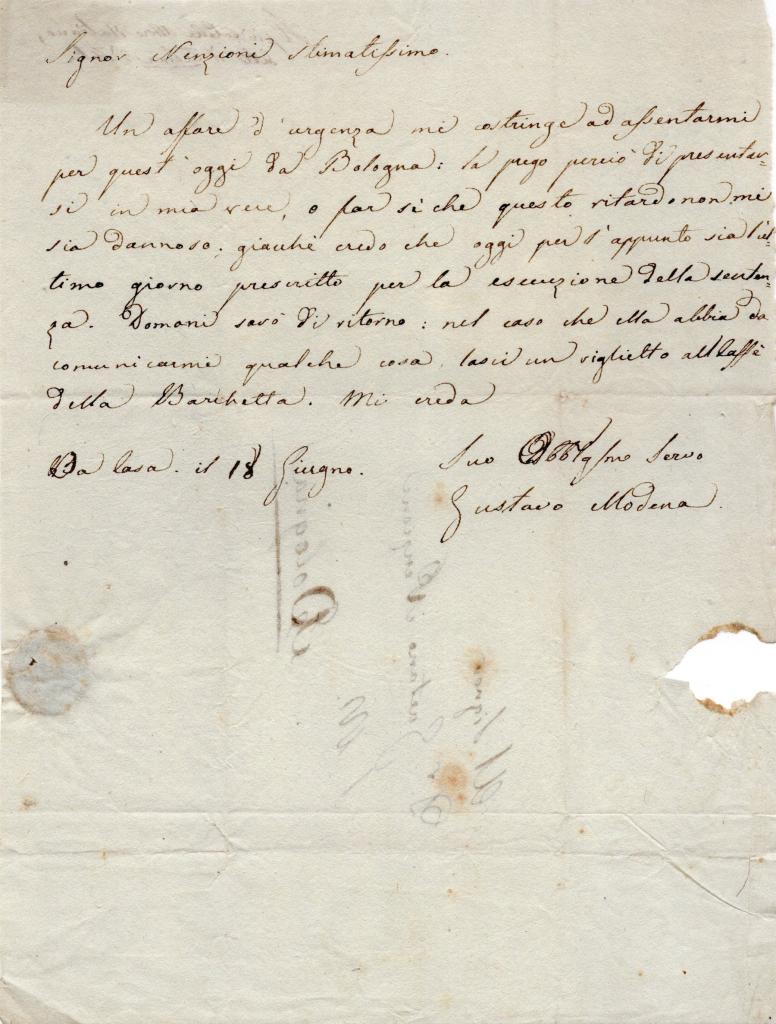 Signor Nenzioni stimatissimo.
Un affare d'urgenza mi costringe ad assentarmi
per quest'oggi da Bologna: la prego perciò di presentar-
si in mia vece, o far sì che questo ritardo non mi
sia dannoso; giacchè credo che oggi per l'appunto sia l'ul-
timo giorno prescritto per la esecuzione della senten-
za. Domani sarò di ritorno: nel caso che ella abbia da
comunicarmi qualche cosa, lasci un viglietto al Caffè
della Barchetta. Mi creda
Da Casa. il 18 Giugno.
Suo Obblgmo Servo
Gustavo Modena.
Bologna